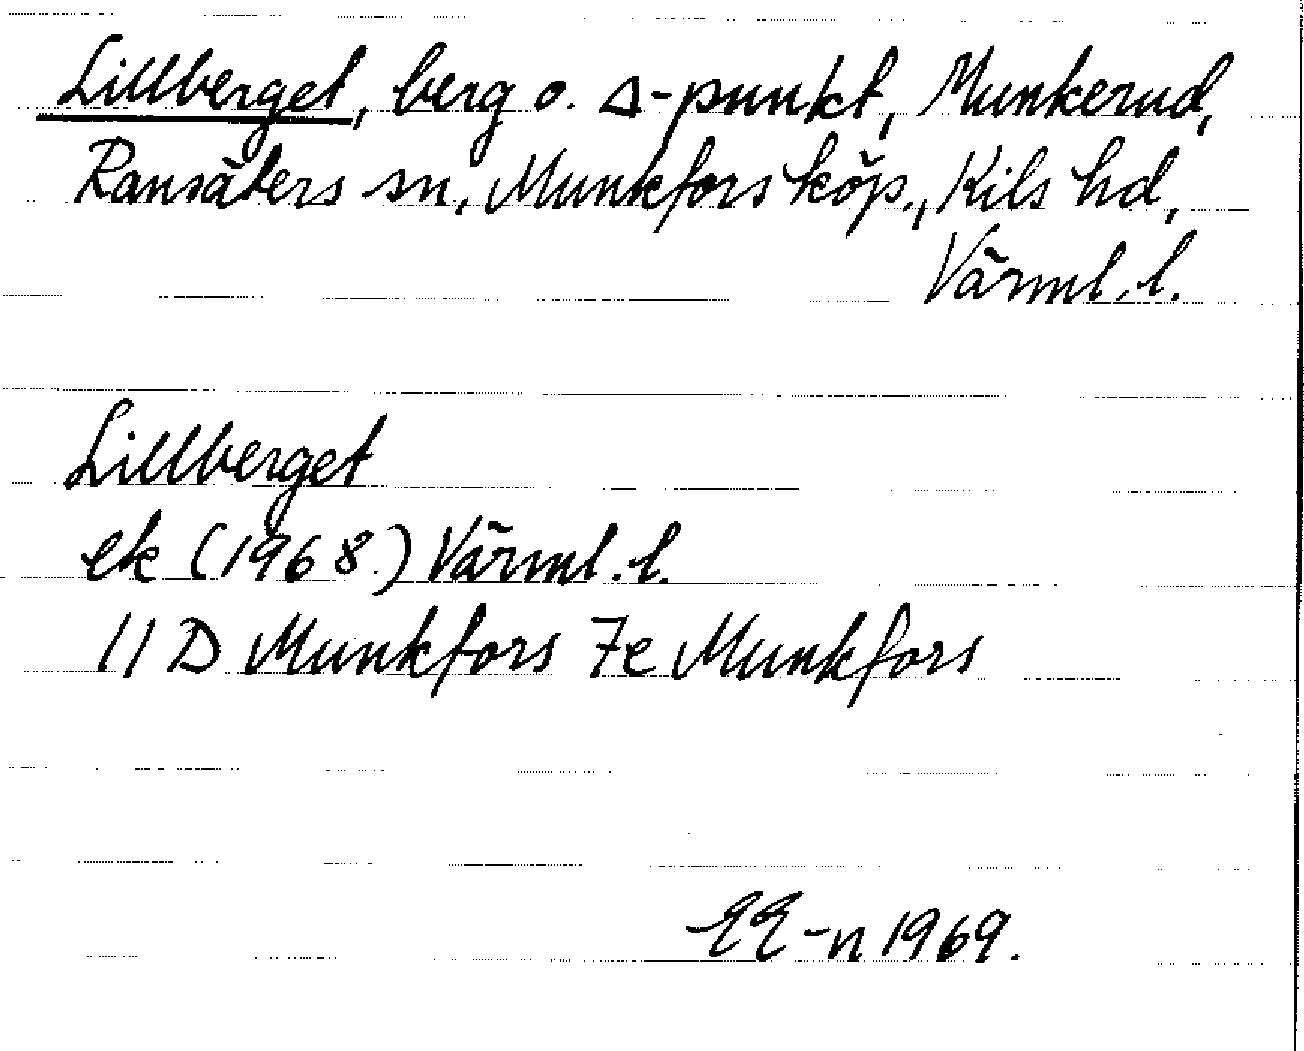 Lillberget, berg o. Δ-punkt, Munkerud,
Ransäters sn, Munkfors köp., Kils hd,
Värml. l.
Lillberget
ek (1968) Värml. l.
11 D Munkfors 7e Munkfors
EE-n 1969.